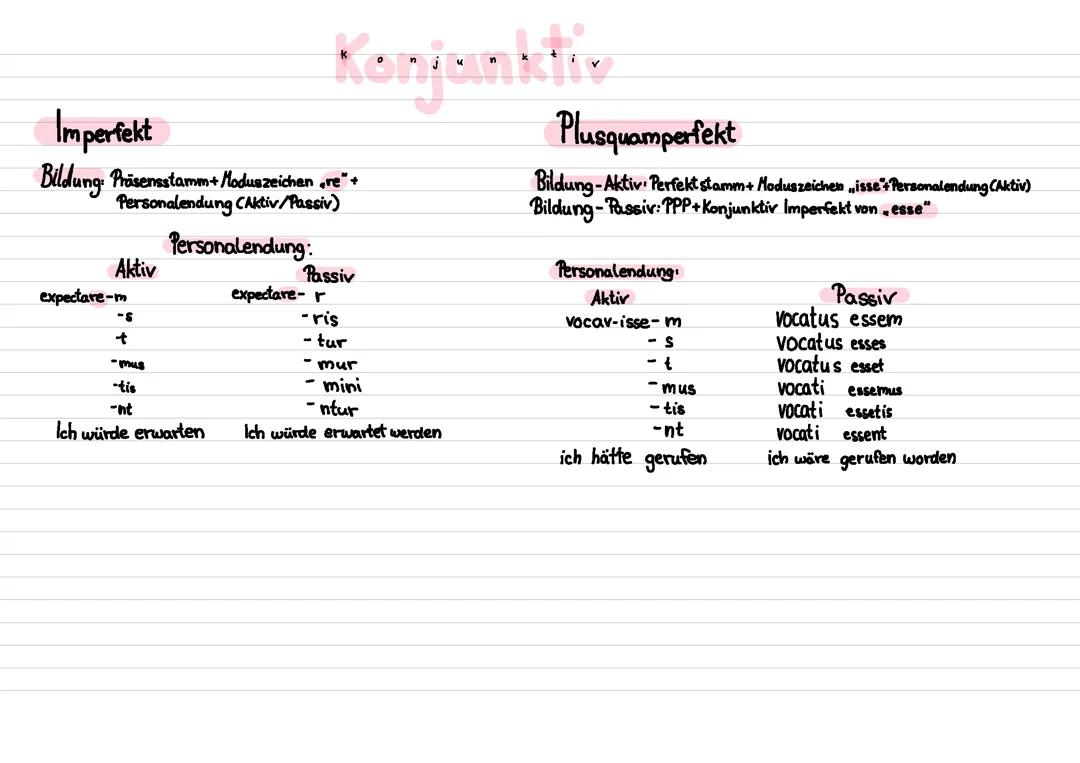 Konjunktiv
Konjunktiv
Imperfekt
Bildung: Präsensstamm + Moduszeichen „re" +
Personalendung (Aktiv/Passiv)
Personalendung:
Aktiv
expectare-m
-s
-t
-mus
-tis
-nt
Ich würde erwarten
Passiv
expectare- r
- ris
- tur
- mur
- mini
- ntur
Ich würde erwartet werden
Plusquamperfekt
Bildung - Aktiv: Perfektstamm + Moduszeichen „isse" + Personalendung (Aktiv)
Bildung - Passiv: PPP + Konjunktiv Imperfekt von „esse"
Personalendung:
Aktiv
vocav-isse- m
- s
- t
- mus
- tis
- nt
ich hätte gerufen
Passiv
vocatus essem
vocatus esses
vocatus esset
vocati essemus
vocati essetis
vocati essent
ich wäre gerufen worden